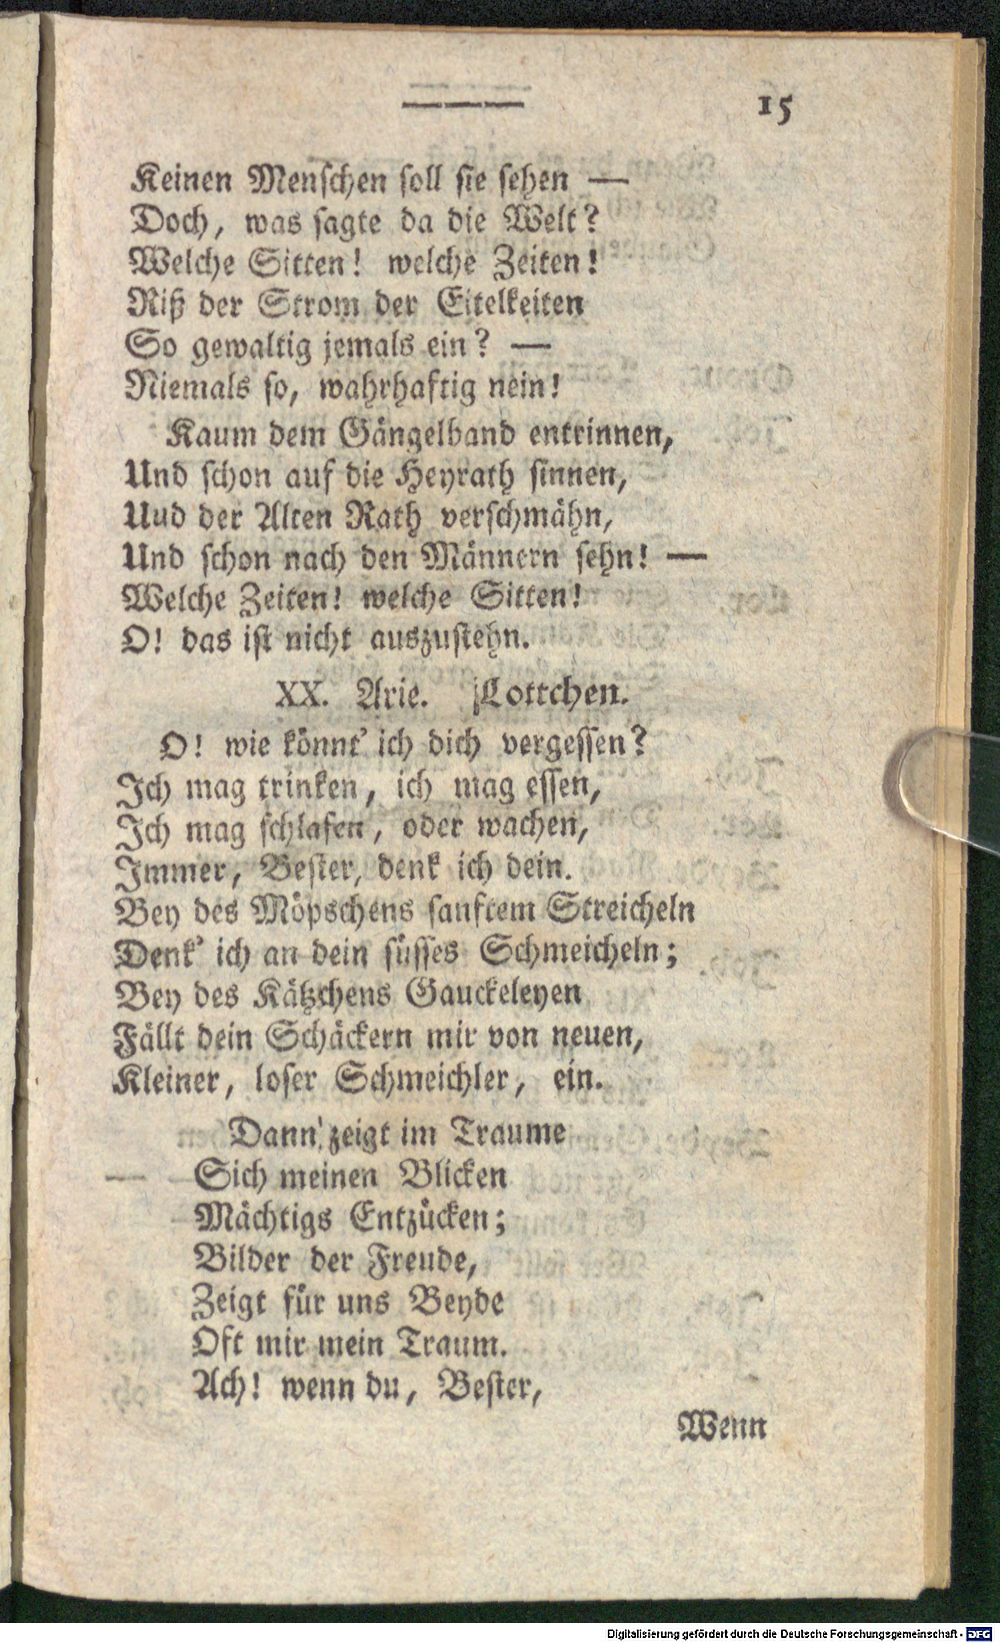 15
Keinen Menschen soll sie sehen —
Doch, was sagte da die Welt?
Welche Sitten! welche Zeiten!
Riß der Strom der Eitelkeiten
So gewaltig jemals ein? —
Niemals so, wahrhaftig nein!
Kaum dem Gängelband entrinnen,
Und schon auf die Heyrath sinnen,
Uud der Alten Rath verschmähn,
Und schon nach den Männern sehn! —
Welche Zeiten! welche Sitten!
O! das ist nicht auszustehn.
XX. Arie. Lottchen.
O! wie könnt' ich dich vergessen?
Ich mag trinken, ich mag essen,
Ich mag schlafen, oder wachen,
Immer, Bester, denk ich dein.
Bey des Möpschens sanftem Streicheln
Denk' ich an dein süsses Schmeicheln;
Bey des Kätzchens Gauckeleyen
Fällt dein Schäckern mir von neuen,
Kleiner, loser Schmeichler, ein.
Dann zeigt im Traume
Sich meinen Blicken
Mächtigs Entzücken;
Bilder der Freude,
Zeigt für uns Beyde
Oft mir mein Traum.
Ach! wenn du, Bester,
Wenn
Digitalisierung gefördert durch die Deutsche Forschungsgemeinschaft - DFG